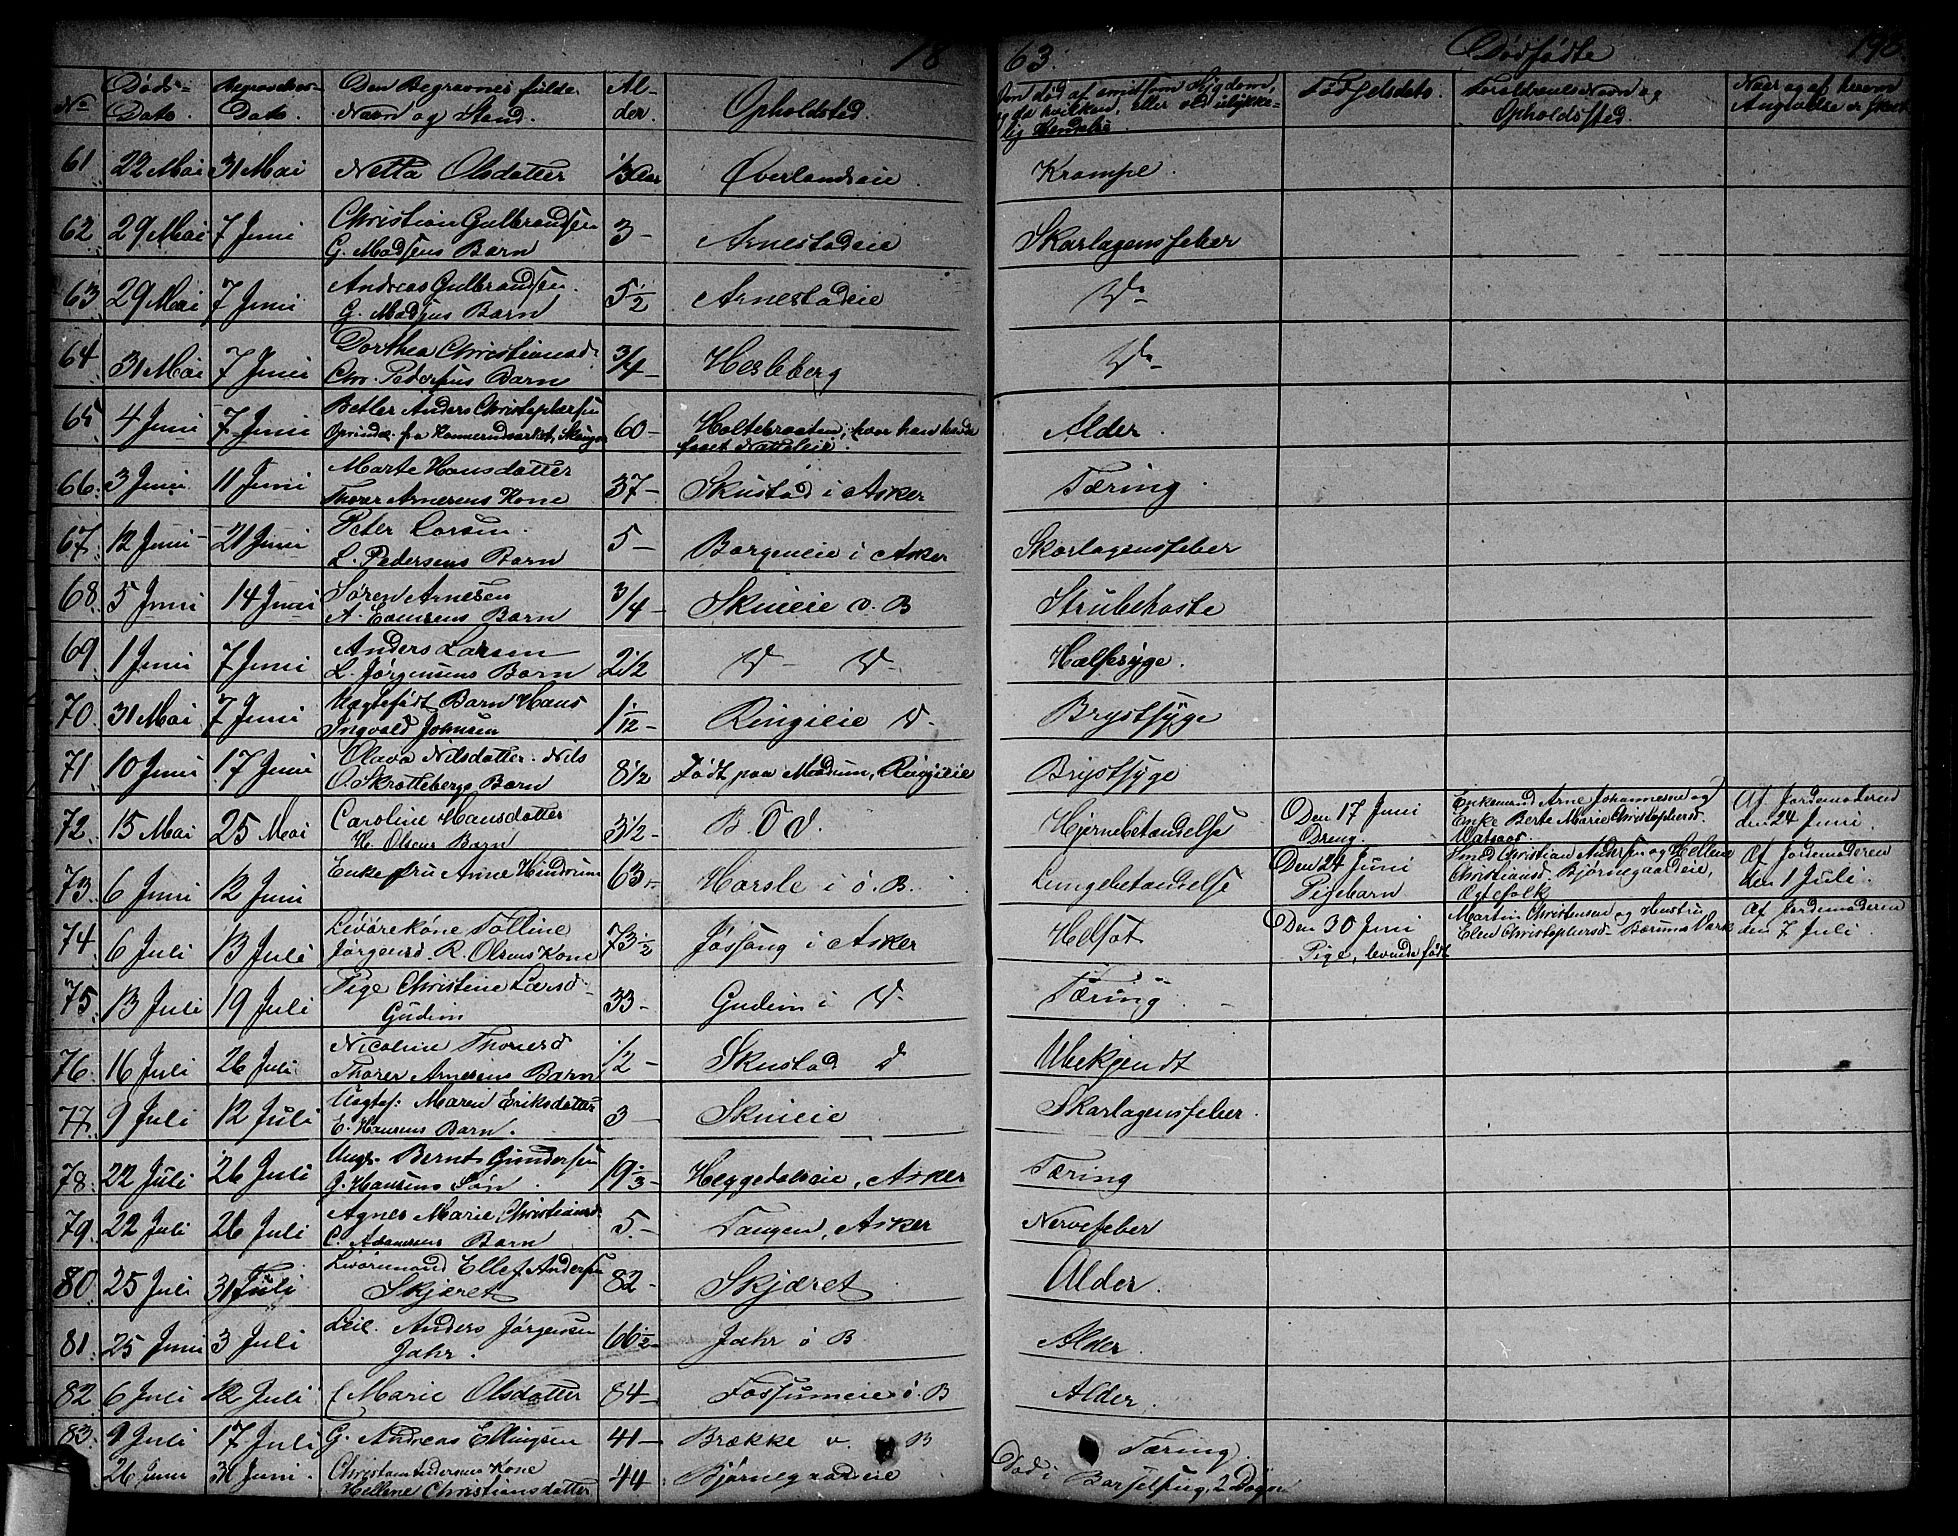 18 63. Dødfødte 196.
No Døds-Dato. Begravelses-Dato. Den Begravnes fulde Navn og Stand. Alder. Opholdsted. Om død af smitsom Sygdom, og da hvilken, eller ved ulykkelig Hendelse. Fødselsdato. Forældrenes Navn og Opholdssted. Naar og af hvem Angivelse er skeet
61 22 Mai 31 Mai Netta Olsdatter Øverlandseie Krampe.
62. 29 Mai 7 Juni Christian Gulbrandsen
G. Madsens Barn 3 - Arnestadeie Skarlagensfeber
63 29 Mai 7 Juni Andreas Gulbrandsen.
G. Madsens Barn 5 1/2 Arnestadeie Do
64 31 Mai 7 Juni Dorthea Christiansd.
Chr. Pedersens Barn 3/4 - Hesleberg Do
65 4 Juni 7 Juni Betler Anders Christophersen
fra Skouger 60 - Holtebraaten, hvor han havde
faaet Natteleie. Alder.
66. 3 Juni 11 Juni Marte Hansdatter
Thorer Arnesens Kone 37 - Skustad i Asker Tæring.
67. 12 Juni 21 Juni Peter Larsen.
L. Pedersens Barn 5 - Borgeneie i Asker Skarlagensfeber
68. 5 Juni 14 Juni Søren Arnesen
A. Barn 3/4 - Skuieie v. B Strubehoste
69 1 Juni 7 Juni Anders Larsen
L. Jørgensens Barn 2 1/2 D - D - Halssyge.
70. 31 Mai 7 Juni Uægtefødt Barn Hans
Ingvald Johnsen 1/12 - Ringieie D. Brystsyge
71 10 Juni 17 Juni Olava Nilsdatter. Nils
O. Skrottebergs Barn 8 1/2 Født paa Modum, Ringieie Brystsyge
72. 15 Mai 25 Mai Caroline Hansdatter
H. Olsens Barn 3 1/2 - Hjernebetændelse Den 17 Juni
Dreng. Enkemand Arne Johannesen og
Enke Berte Marie Christophersd. Af Jordemoderen
den 24 Juni.
73. 6 Juni 12 Juni Enkefru Anne Hindrum 63 - Harsle i ø. B. Lungebetændelse Den 24 Juni
Pigebarn Christian Andersen og Hellene
Christiansd. Bjørnegaardeie,
Ægtefolk Af Jordemoderen
den 1 Juli.
74 6 Juli 13 Juli Livørekone Tolline
Jørgensd. R. Olsens Kone 73 1/2 Jøssong i Asker Helsot Den 30 Juni
Pige, levende født Martin Christensen og Hustru
Elen Christophersd. Bærums Værk Af Jordemoderen
den 7 Juli.
75 13 Juli 19 Juli Pige Christine Larsd.
Gudim 33 - Gudim i D - Tæring
76. 16 Juli 26 Juli Nicoline Thoresd
Thorer Arnesens Barn 1/2 - Skustad D Ubekjendt
77. 9 Juli 12 Juli Uægtef: Maren Eriksdatter
E. Hansens Barn. 3 - Skuieie Skarlagensfeber.
78. 22 Juli 26 Juli Ungk. Bernt Gundersen
G. Hansens Søn. 19 1/3 - Heggedalseie, Asker Tæring
79. 22 Juli 26 Juli Agnes Marie Christiansd.
C. Adamsens Barn 5. - Tangen, Asker Nervefeber
80. 25 Juli 31 Juli Livøremand Ellef Andersen
Skjæret 82 - Skjæret Alder.
81 25 Juni 3 Juli Leil. Anders Jørgensen
Jahr. 66 1/2 - Jahr ø B. Alder.
82. 6 Juli 12 Juli Marie Olsdatter 84 - Fossumeie ø. B Alder.
83. 9 Juli 17 Juli G. Andreas Ellingsen 41 - Brække v. B Tæring.
26 Juni 31 Juni. Christian Andersens Kone
Hellene Christiansdatter 44 - Bjørnegaardeie Død i Barselseng, 2 Døgn